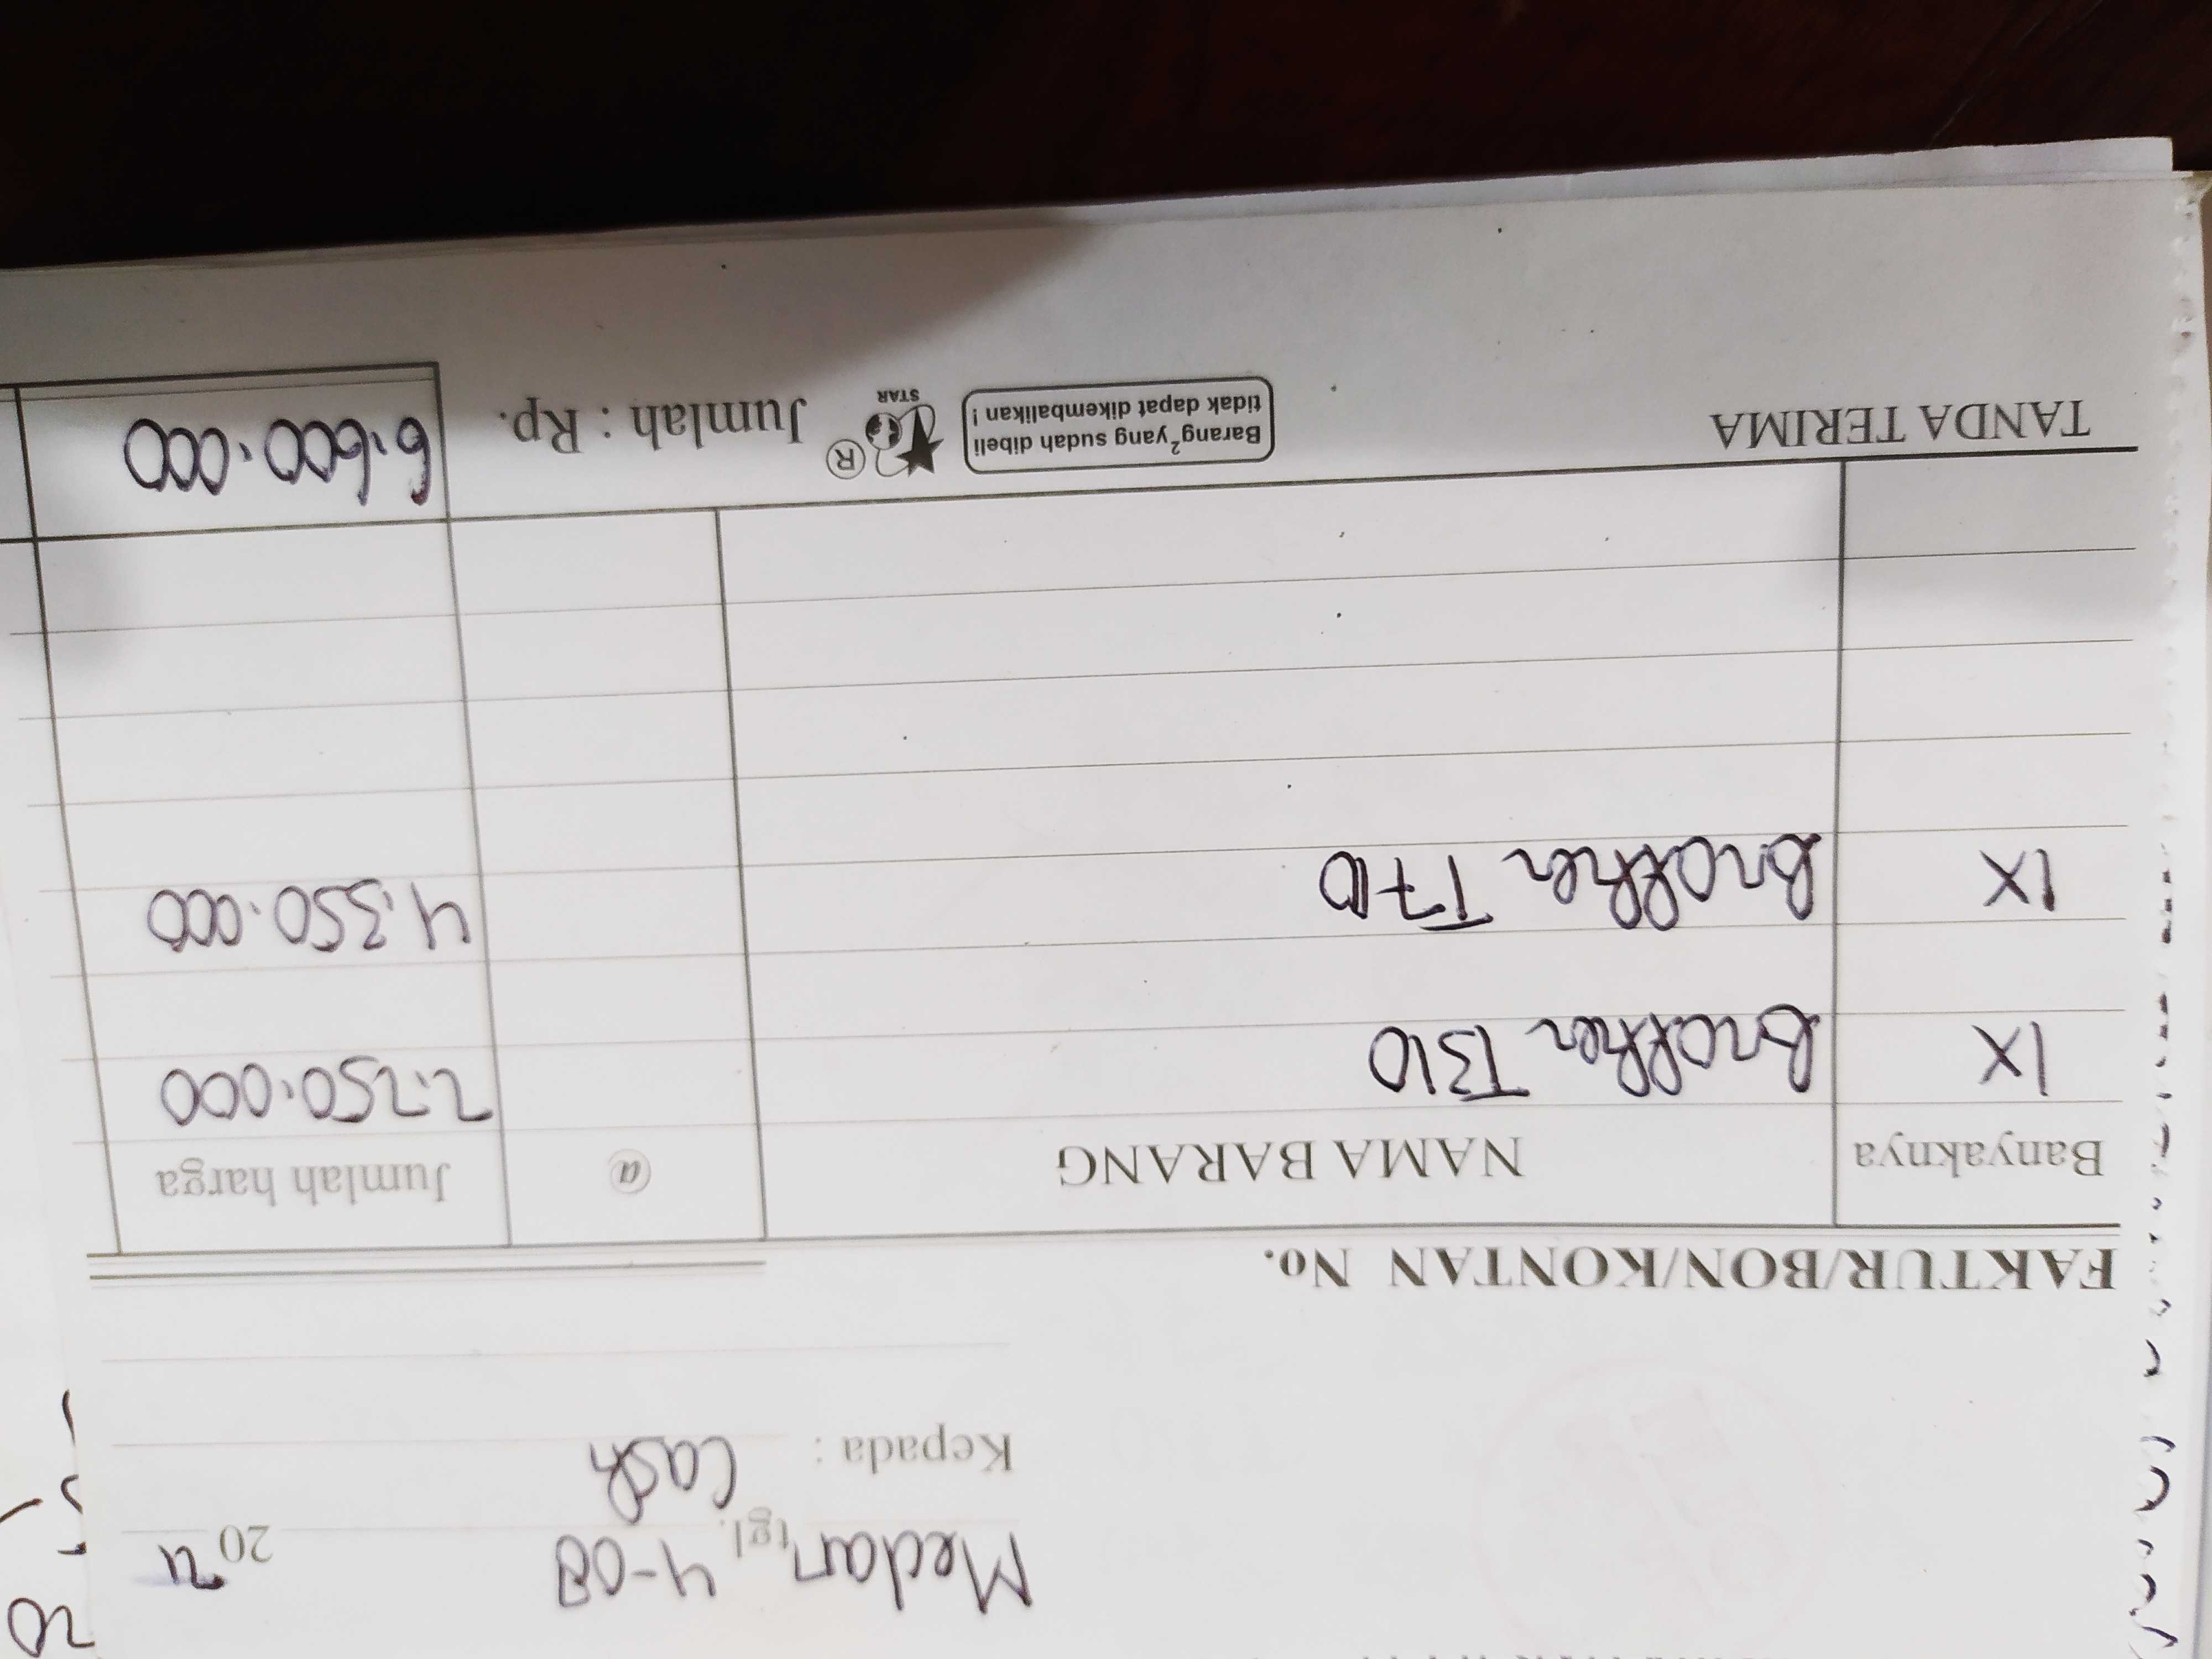 Medan, tgl. 4-08 20
Kepada : Cash
FAKTUR/BON/KONTAN No.
Banyaknya NAMA BARANG @ Jumlah harga
1X Brother T310 2.250.000
1X Brother T710 4.350.000
TANDA TERIMA
Barang² yang sudah dibeli
tidak dapat dikembalikan !
R
STAR
Jumlah : Rp. 6.600.000